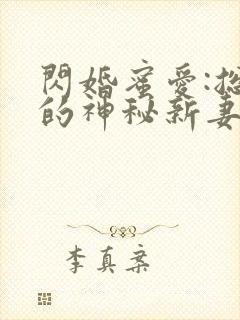 閃婚蜜愛:
的神秘新妻
李真案